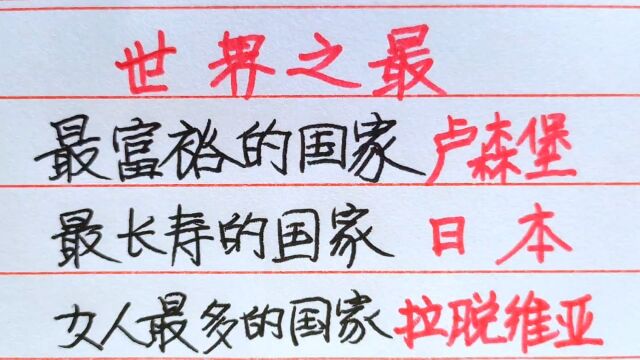 世界之最
最富裕的国家 卢森堡
最长寿的国家 日本
女人最多的国家 拉脱维亚